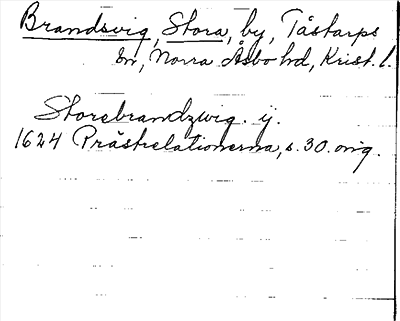 Brandsvig, Stora, by, Tåstarps
sn, Norra Åsbo hd, Krist. l.
Storebrandzwig. ij.
1624 Prästrelationerna, s. 30. orig.